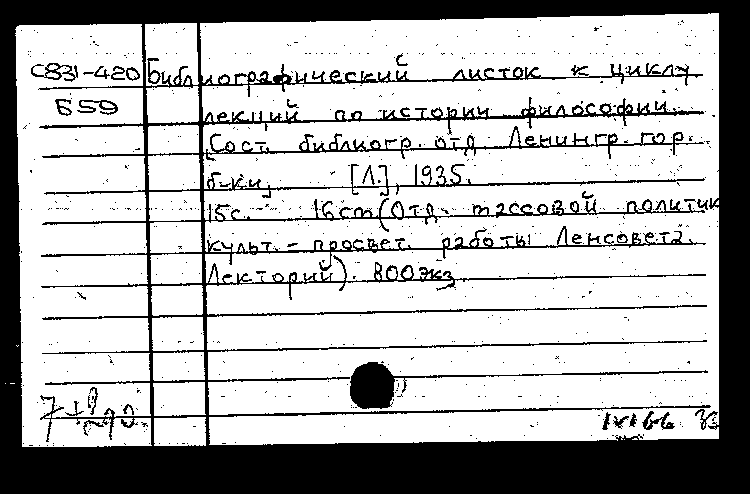 С831-420 Библиографический листок к циклу
Б59 лекций по истории философии.
[Сост. библиогр. отд Ленингр. гор.
б-ки, [Л.], 1935.
15с. 16cm (Отд. массовой политик
культ.-просвет. работы Ленсовета.
Лекторий). 800экз